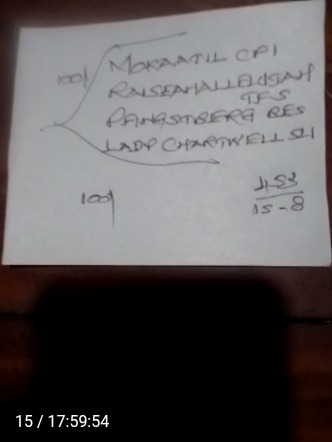 100/
MOKAATIL CPI
RAISEAHALLELUJAH
TFS
PANGSTBERG RES
LADY CHARTWELL SH
100/
453
15-8
15 / 17:59:54